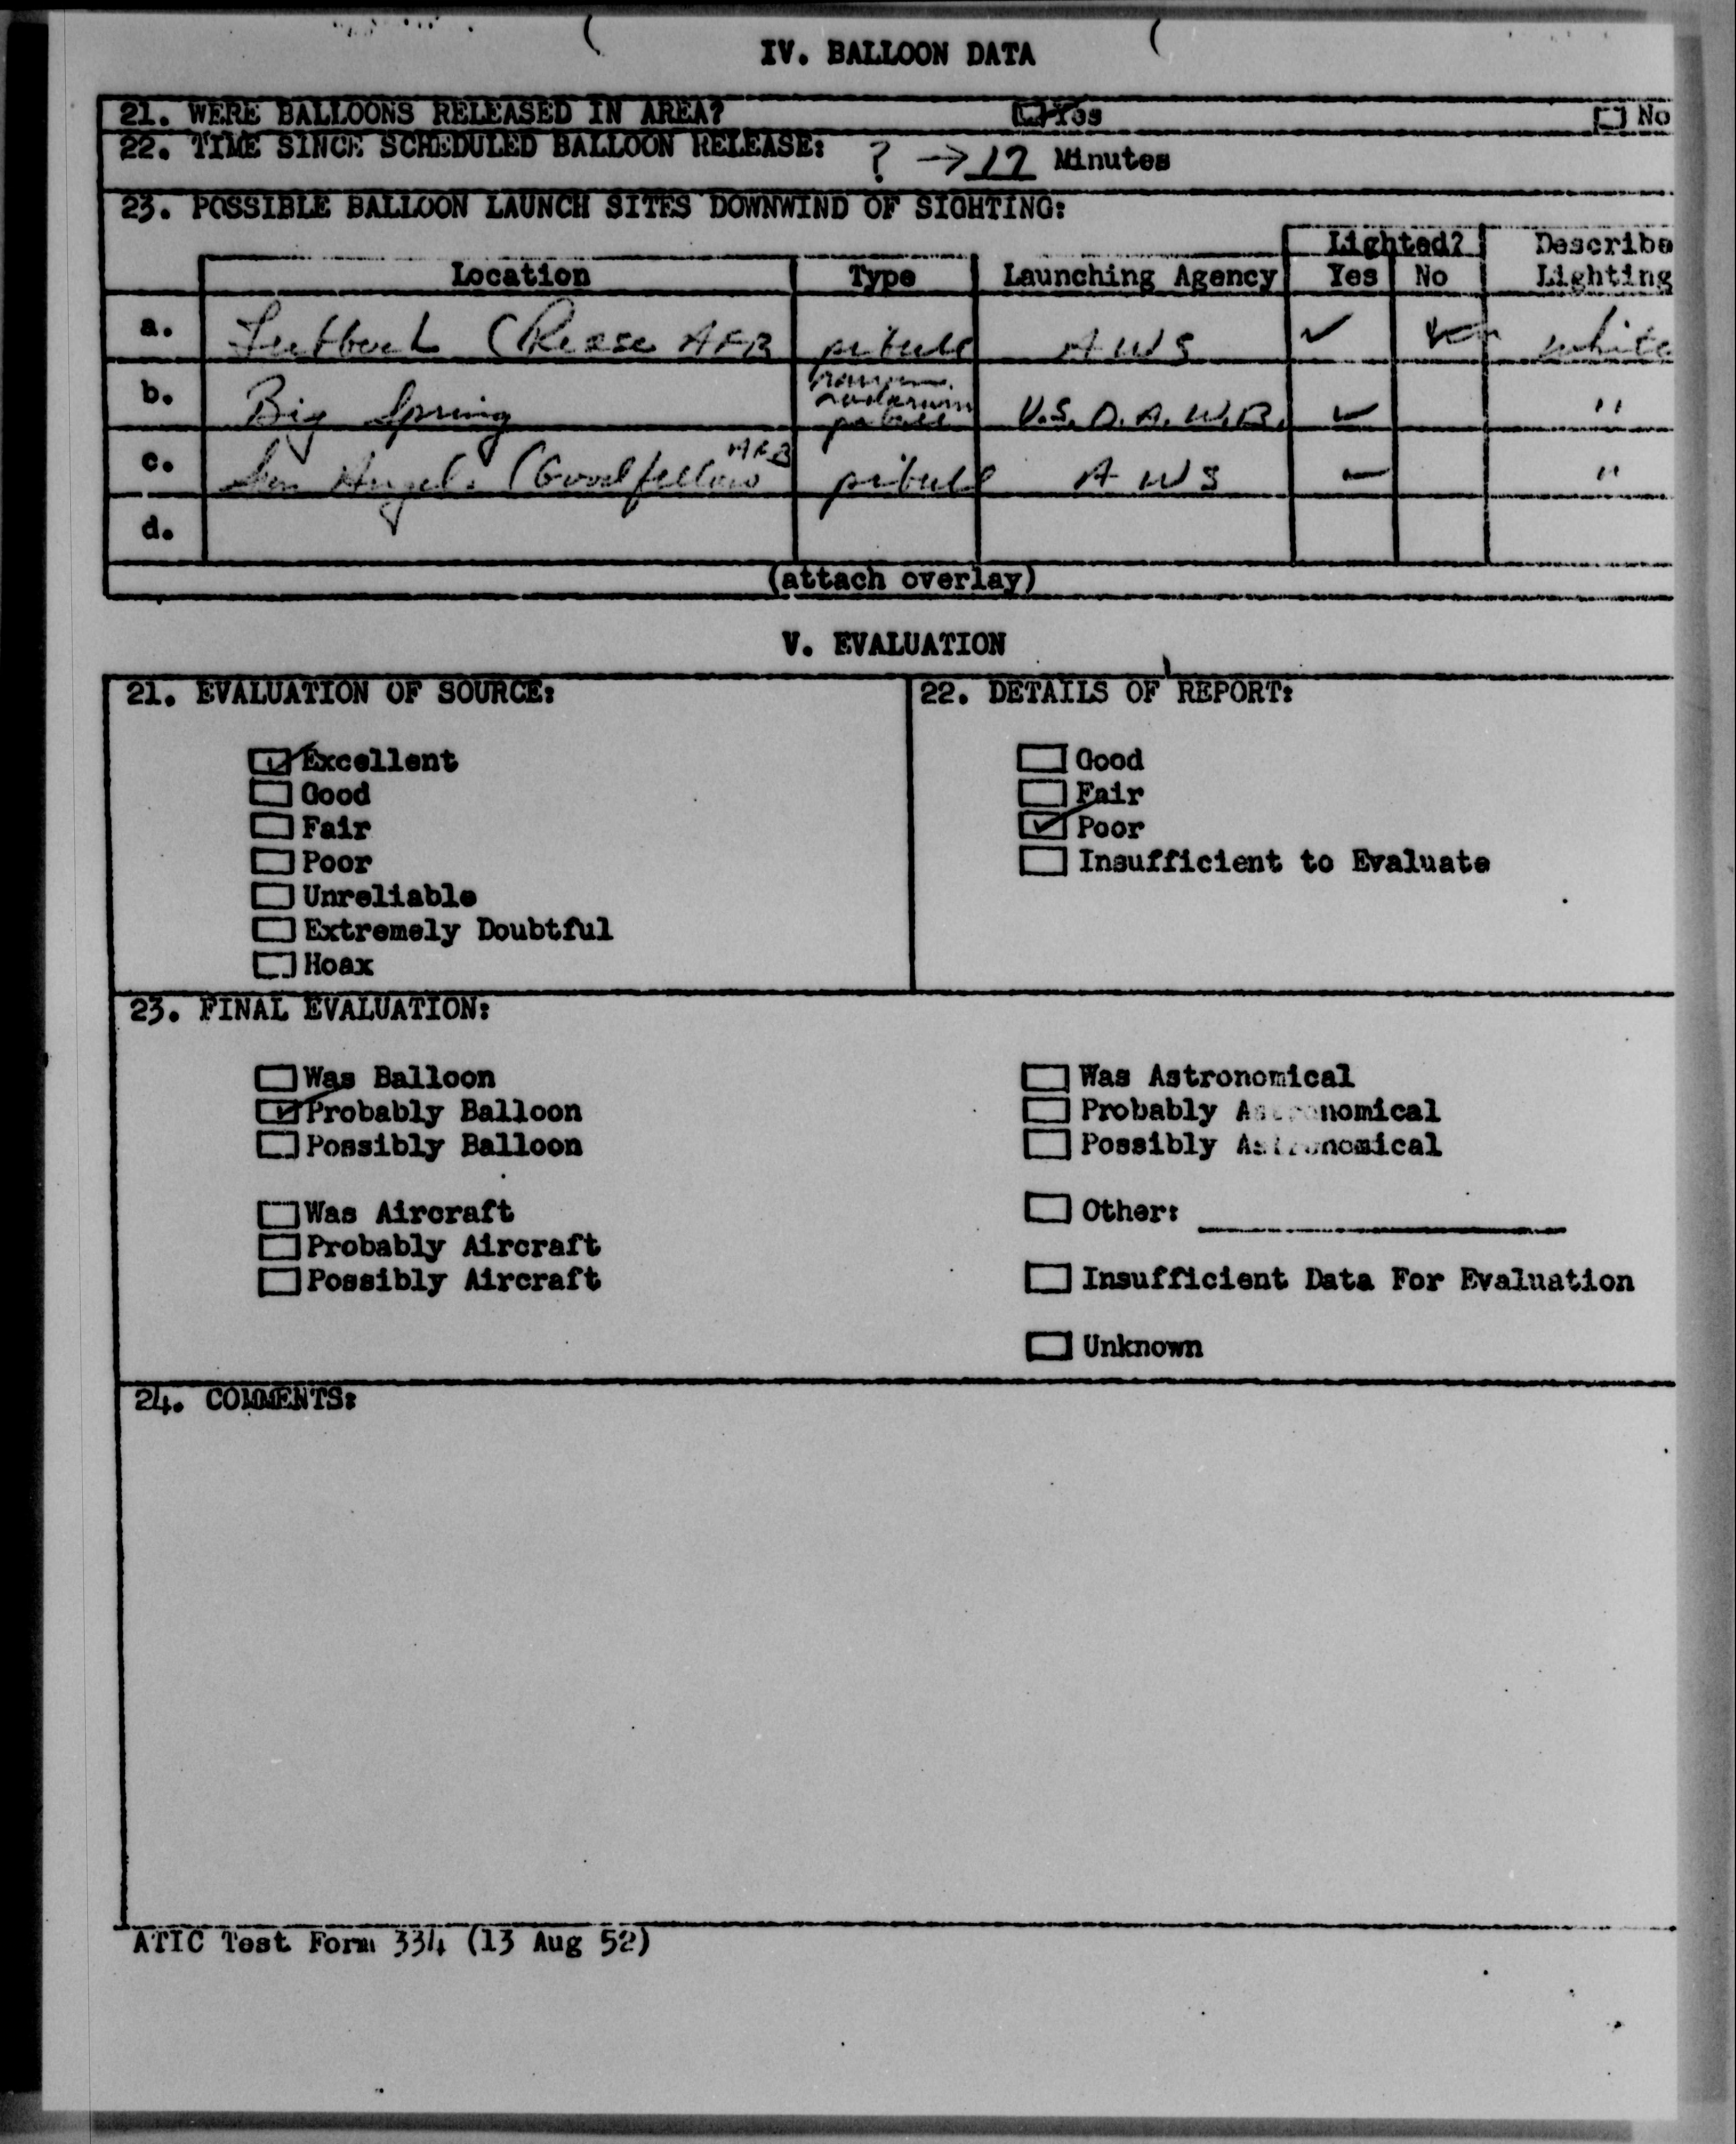 IV. BALLOON DATA
21. WERE BALLOONS RELEASED IN AREA? Yes No
22. TIME SINCE SCHEDULED BALLOON RELEASE: ? → 17 Minutes
23. POSSIBLE BALLOON LAUNCH SITES DOWNWIND OF SIGHTING:
Lighted? Describe
Location Type Launching Agency Yes No Lighting
a. (Reese AFB pibal AWS ✓ white
b. Big Spring pibal U.S. D.A. W.B. ✓ "
c. San Angelo (Goodfellow AFB pibal AWS ✓ "
d.
(attach overlay)
V. EVALUATION
21. EVALUATION OF SOURCE: 22. DETAILS OF REPORT:
☑ Excellent ☐ Good
☐ Good ☐ Fair
☐ Fair ☑ Poor
☐ Poor ☐ Insufficient to Evaluate
☐ Unreliable
☐ Extremely Doubtful
☐ Hoax
23. FINAL EVALUATION:
☐ Was Balloon ☐ Was Astronomical
☑ Probably Balloon ☐ Probably Astronomical
☐ Possibly Balloon ☐ Possibly Astronomical
☐ Was Aircraft ☐ Other:
☐ Probably Aircraft
☐ Possibly Aircraft ☐ Insufficient Data For Evaluation
☐ Unknown
24. COMMENTS:
ATIC Test Form 334 (13 Aug 52)